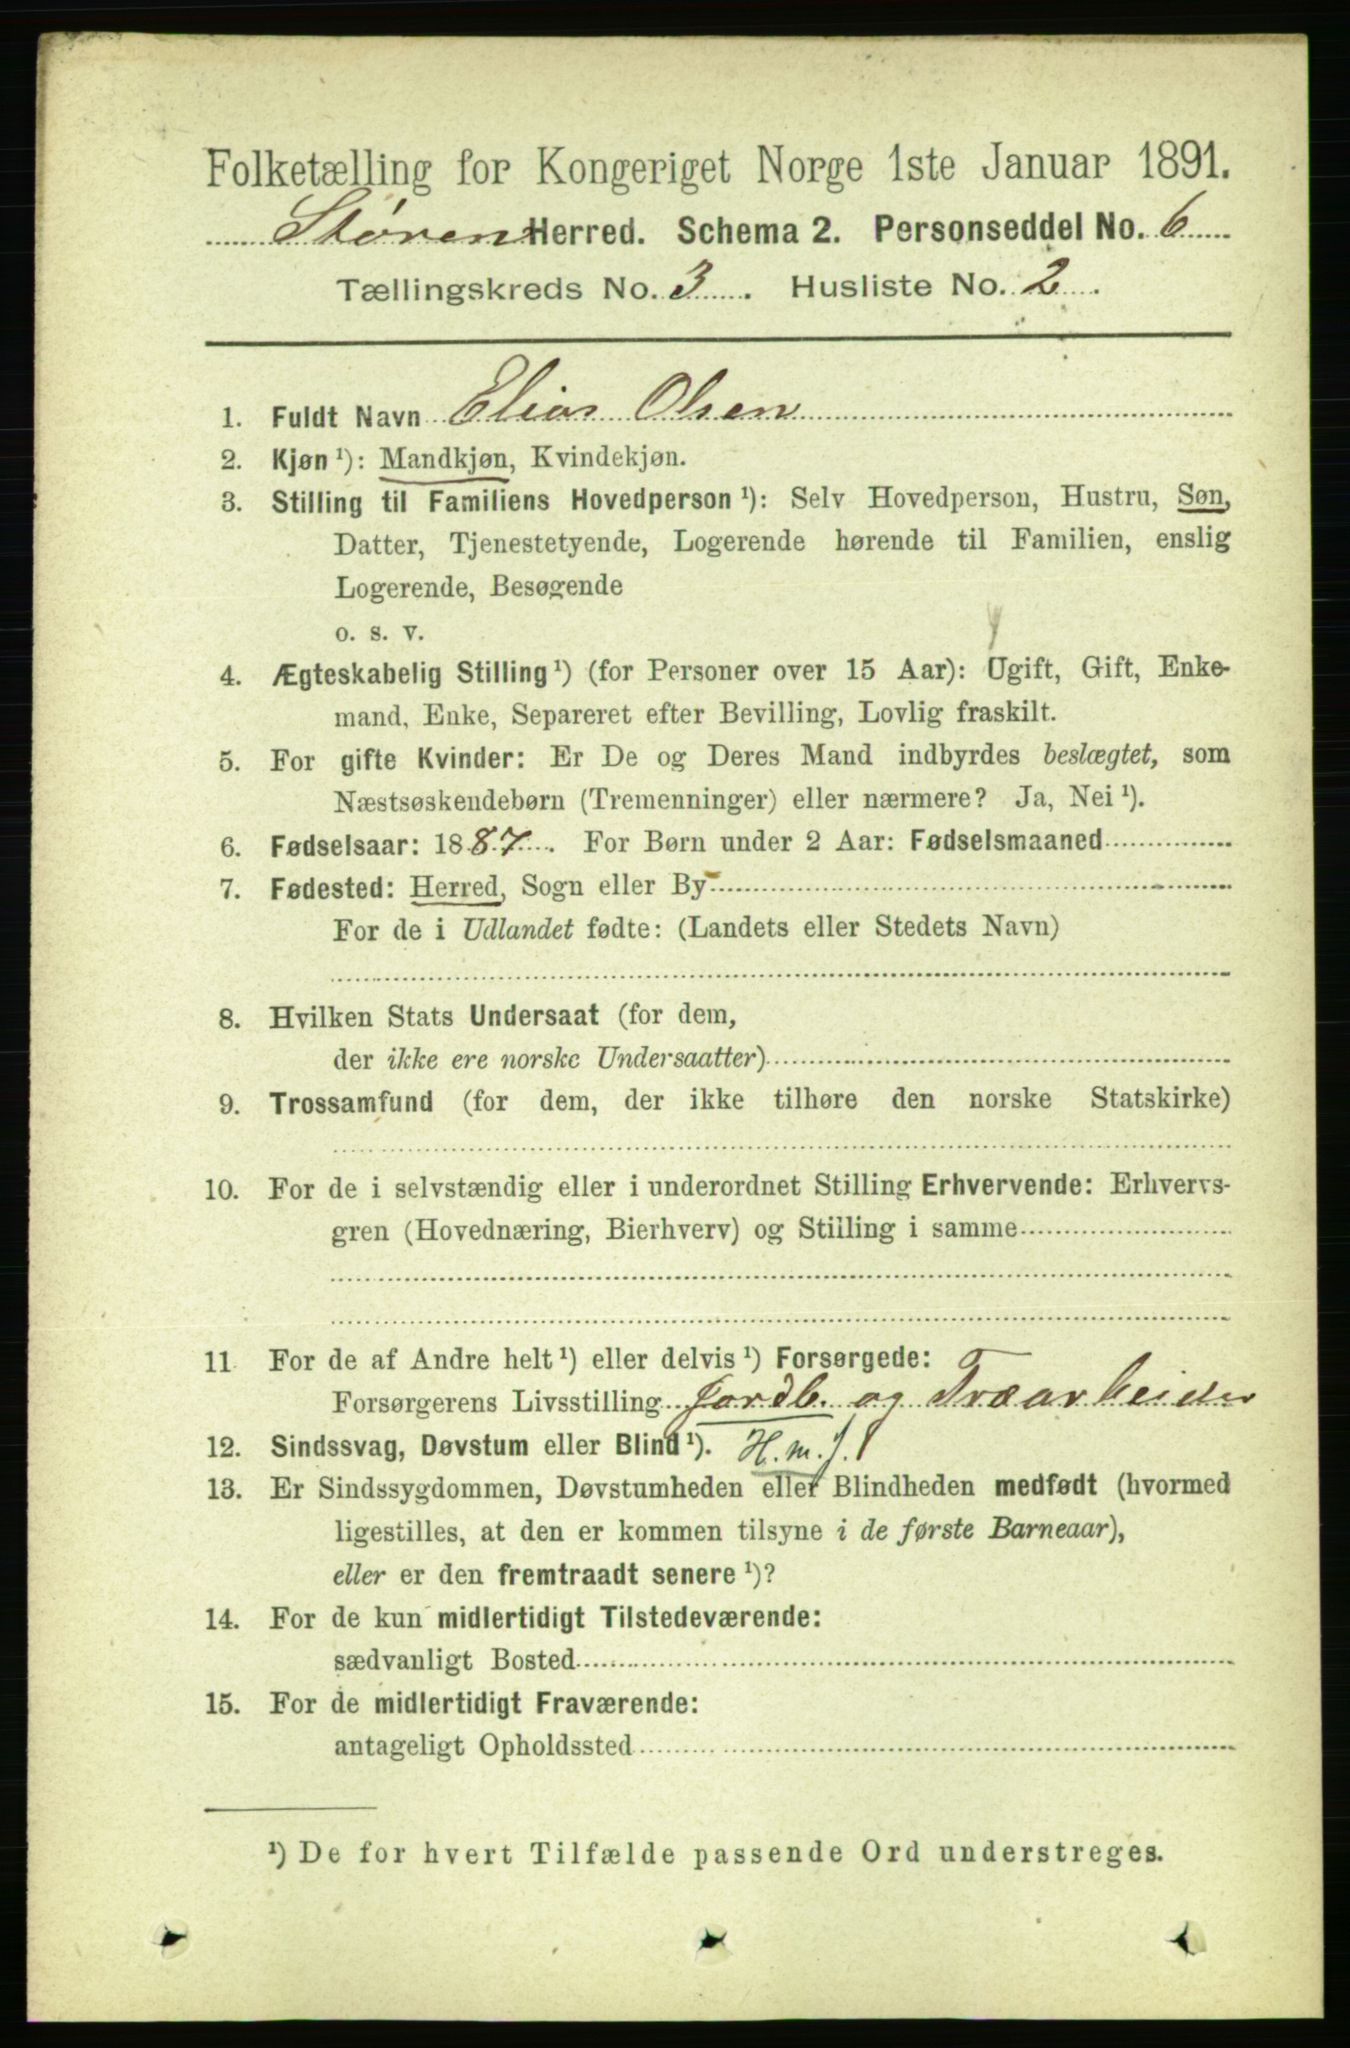 Folketælling for Kongeriget Norge 1ste Januar 1891.
Støren Herred. Schema 2. Personseddel No. 6
Tællingskreds No. 3. Husliste No. 2.
1. Fuldt Navn Elias Olsen
2. Kjøn¹): Mandkjøn, Kvindekjøn.
3. Stilling til Familiens Hovedperson¹): Selv Hovedperson, Hustru, Søn,
Datter, Tjenestetyende, Logerende hørende til Familien, enslig
Logerende, Besøgende
o. s. v.
4. Ægteskabelig Stilling¹) (for Personer over 15 Aar): Ugift, Gift, Enke-
mand, Enke, Separeret efter Bevilling, Lovlig fraskilt.
5. For gifte Kvinder: Er De og Deres Mand indbyrdes beslægtet, som
Næstsøskendebørn (Tremenninger) eller nærmere? Ja, Nei¹).
6. Fødselsaar: 1887. For Børn under 2 Aar: Fødselsmaaned
7. Fødested: Herred, Sogn eller By
For de i Udlandet fødte: (Landets eller Stedets Navn)
8. Hvilken Stats Undersaat (for dem,
der ikke ere norske Undersaatter)
9. Trossamfund (for dem, der ikke tilhøre den norske Statskirke)
10. For de i selvstændig eller i underordnet Stilling Erhvervende: Erhvervs-
gren (Hovednæring, Bierhverv) og Stilling i samme
11 For de af Andre helt¹) eller delvis¹) Forsørgede:
Forsørgerens Livsstilling Jordb. og Træarbeider
12. Sindssvag, Døvstum eller Blind¹). H. m. J.
13. Er Sindssygdommen, Døvstumheden eller Blindheden medfødt (hvormed
ligestilles, at den er kommen tilsyne i de første Barneaar),
eller er den fremtraadt senere¹)?
14. For de kun midlertidigt Tilstedeværende:
sædvanligt Bosted
15. For de midlertidigt Fraværende:
antageligt Opholdssted
¹) De for hvert Tilfælde passende Ord understreges.